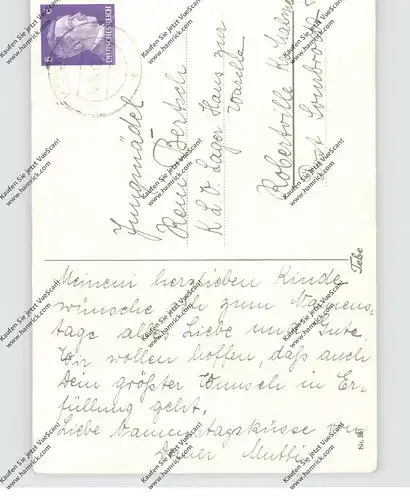 DEUTSCHES REICH
6 6
Jungmädel
Reni Bertsch
K L V. Lager Haus zur
Warche
Robertville b. Malmedy
Post Sourbrodt
Meinem herzlieben Kinde
wünsche ich zum Namens-
tage alles Liebe und Gute.
Wir wollen hoffen, daß auch
Dein größter Wunsch in Er-
füllung geht.
Liebe Namenstagsküsse von
Deiner Mutti
Tebe
Kaufen Sie jetzt VueScan!
www.hamrick.com